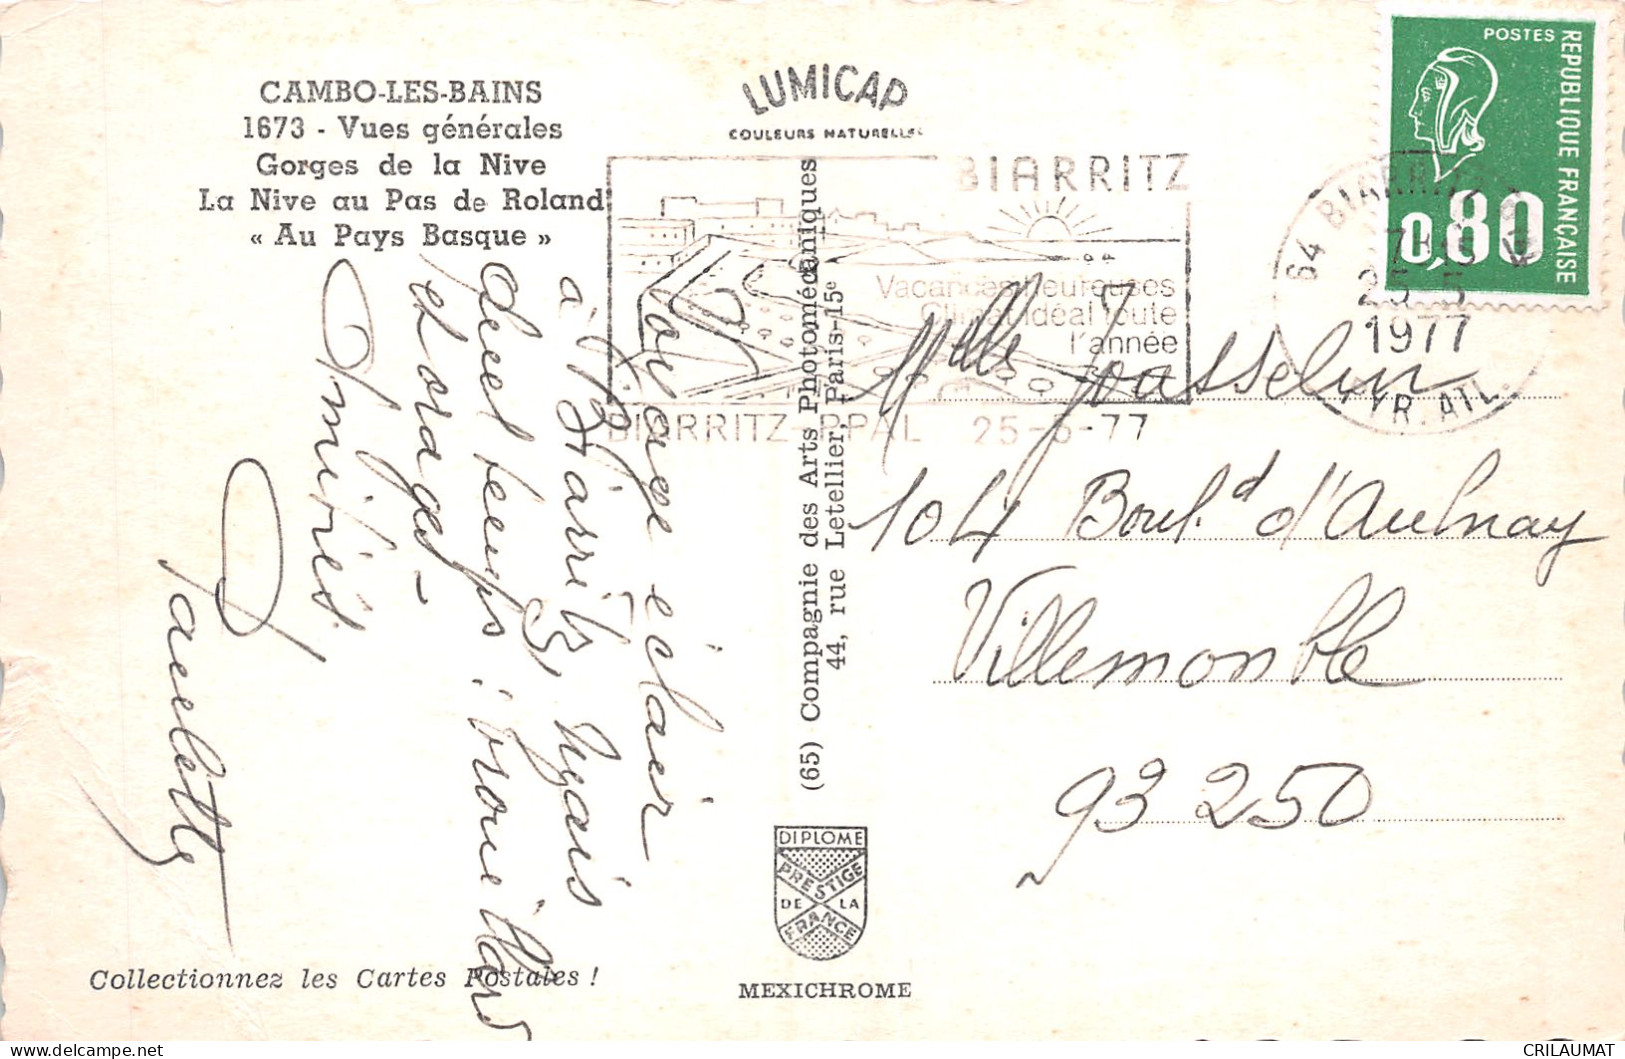 CAMBO-LES-BAINS
1673 - Vues générales
Gorges de la Nive
La Nive au Pas de Roland
« Au Pays Basque »
LUMICAP
COULEURS NATURELLES
Voyage éclair
à Biarritz, mais
quel temps : brouillard
et orages -
Amitiés.
Paulette
Collectionnez les Cartes Postales !
(65) Compagnie des Arts Photomécaniques
44, rue Letellier, Paris-15e
DIPLOME
PRESTIGE
DE LA
FRANCE
MEXICHROME
BIARRITZ
Vacances heureuses
Climat idéal toute
l'année
BIARRITZ-PPAL 25-5-77
64 BIARRITZ
25-5
1977
PYR. ATL.
POSTES
REPUBLIQUE FRANÇAISE
0,80
Melle Josselin
104 Boul.d d'Aulnay
Villemomble
93250
CRILAUMAT